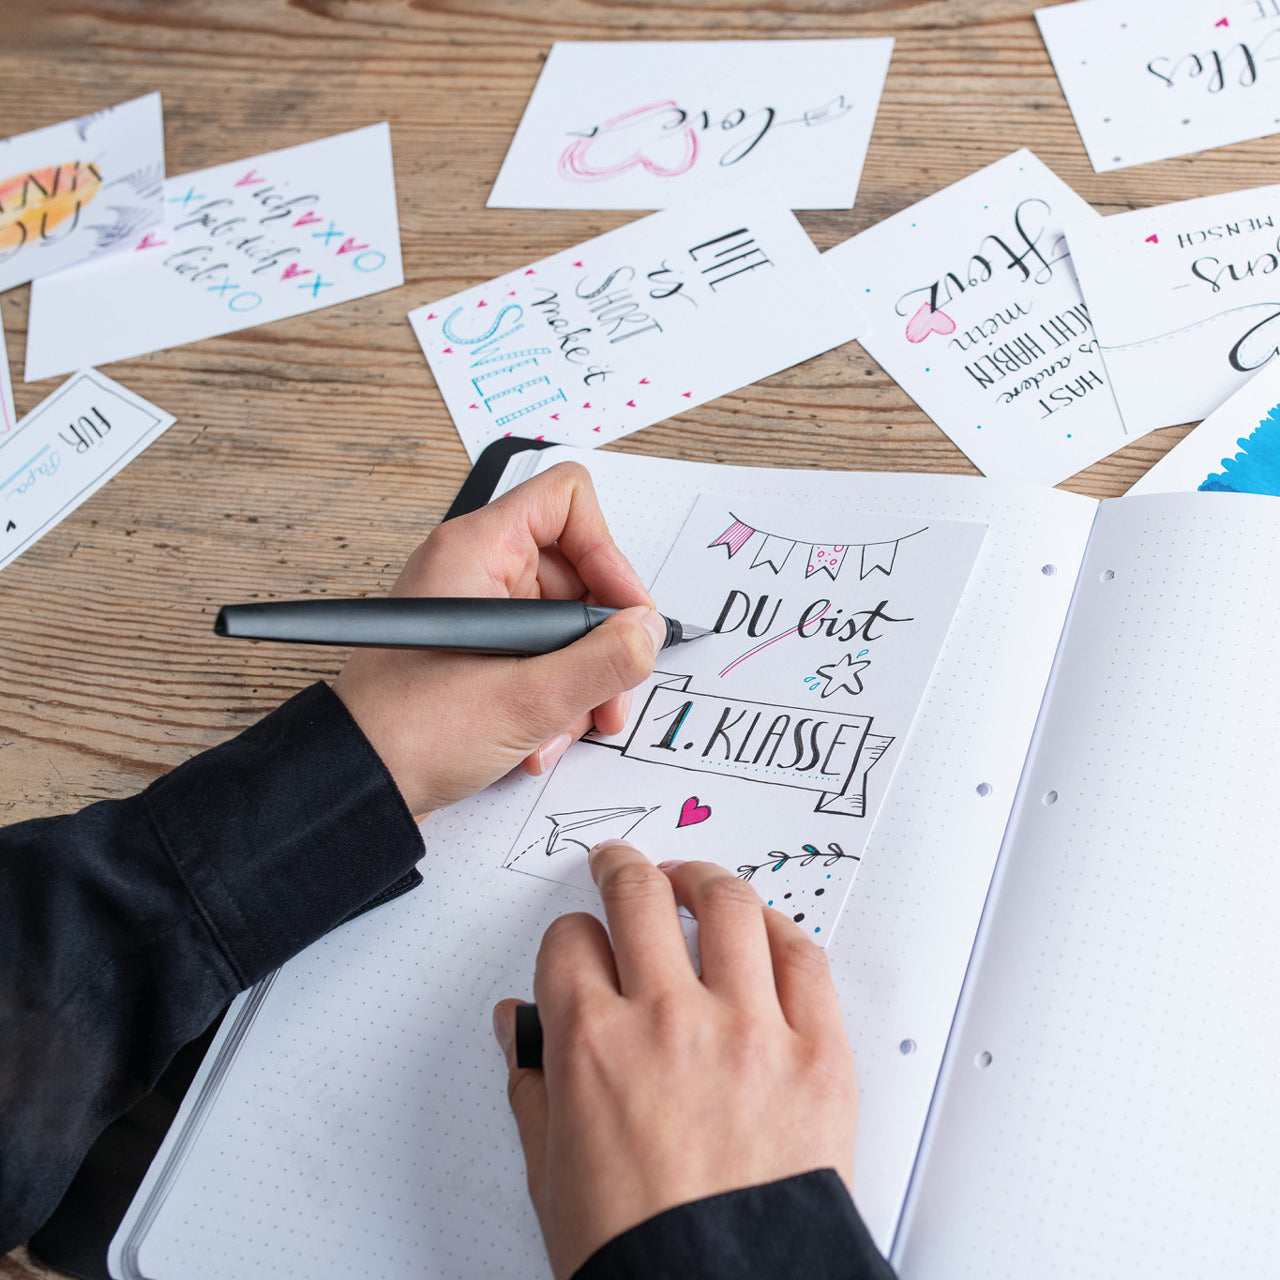 love
ich XO
X hab dich X
lieb XO
LIFE
is
SHORT
make it
SWEET
HAST
andere
HABEN
mein
Herz
MENSCH
FÜR
Papa
DU bist
1. KLASSE